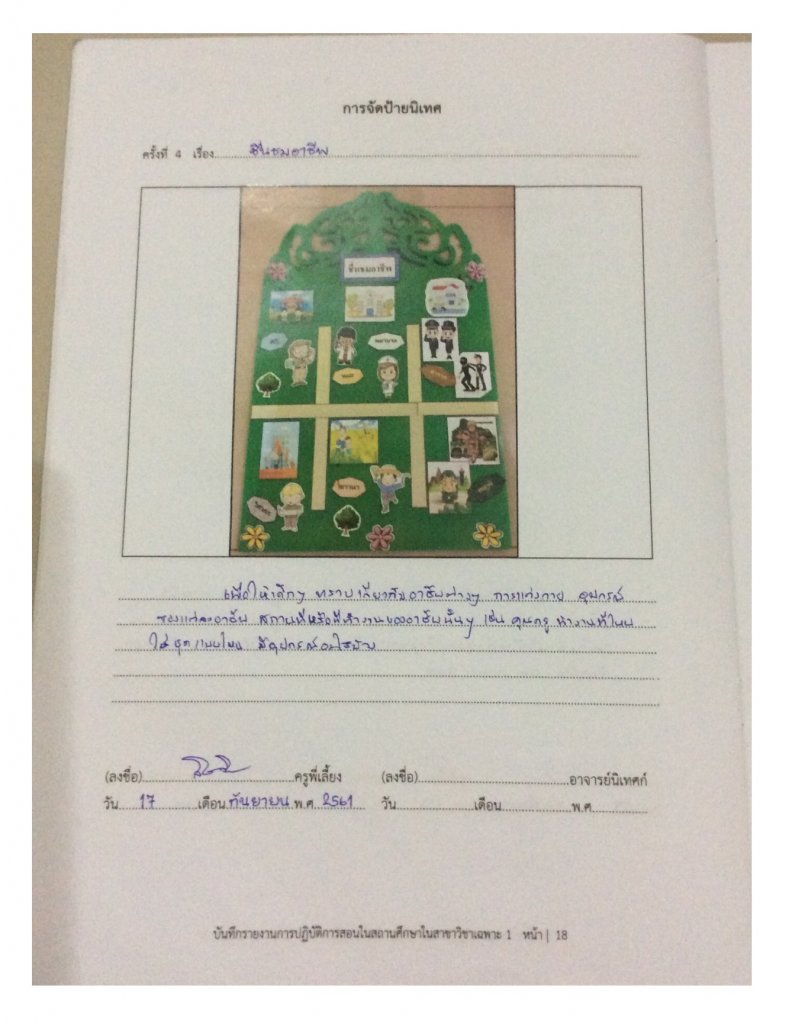 การจัดป้ายนิเทศ
ครั้งที่ 4 เรื่อง ชื่นชมอาชีพ
ชื่นชมอาชีพ
ครู
พยาบาล
หมอ
ตำรวจ
ชาวนา
ทหาร
เพื่อให้เด็กๆ ทราบเกี่ยวกับอาชีพต่างๆ การแต่งกาย อุปกรณ์
ของแต่ละอาชีพ สถานที่หรือที่ทำงานของอาชีพนั้นๆ เช่น คุณครู ทำงานที่ไหน
ใส่ชุดแบบไหน มีอุปกรณ์อะไรบ้าง
(ลงชื่อ) ครูพี่เลี้ยง (ลงชื่อ) อาจารย์นิเทศก์
วัน 17 เดือน กันยายน พ.ศ. 2561 วัน เดือน พ.ศ.
บันทึกรายงานการปฏิบัติการสอนในสถานศึกษาในสาขาวิชาเฉพาะ 1 หน้า | 18